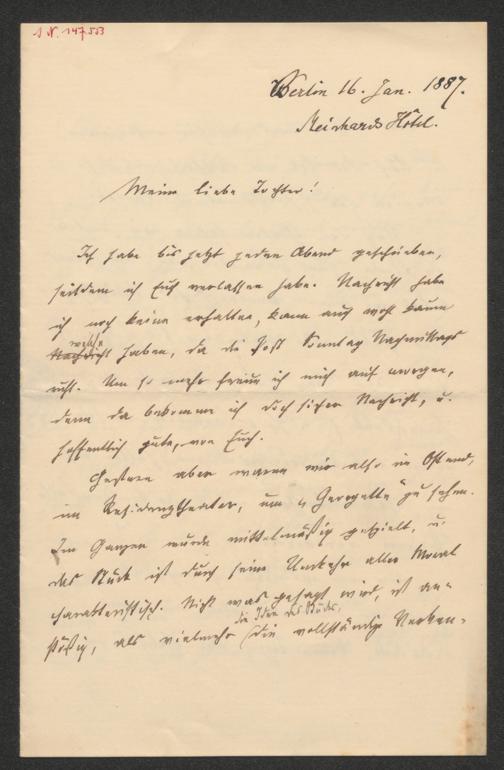 J. N. 147.553
Berlin 16. Jan. 1887.
Meinhards Hôtel.
Meine liebe Tochter!
Ich habe bis jetzt jeden Abend geschrieben,
seitdem ich Euch verlassen habe. Nachricht habe
ich noch keine erhalten, kann auch wohl kaum
welche
Nachricht haben, da die Post Sonntag Nachmittags
ruht. Um so mehr freue ich mich auf morgen,
denn da bekomme ich doch sicher Nachricht, u.
hoffentlich gute, von Euch.
Gestern aber waren wir also in Ostend,
im Residenztheater, um "Georgette" zu sehen.
Im Ganzen wurde mittelmäßig gespielt, u.
das Stück ist durch seine Umkehr aller Moral
charakteristisch. Nicht was gesagt wird, ist an-
die Idee des Stücks,
stößig, als vielmehr die vollständige Verken-